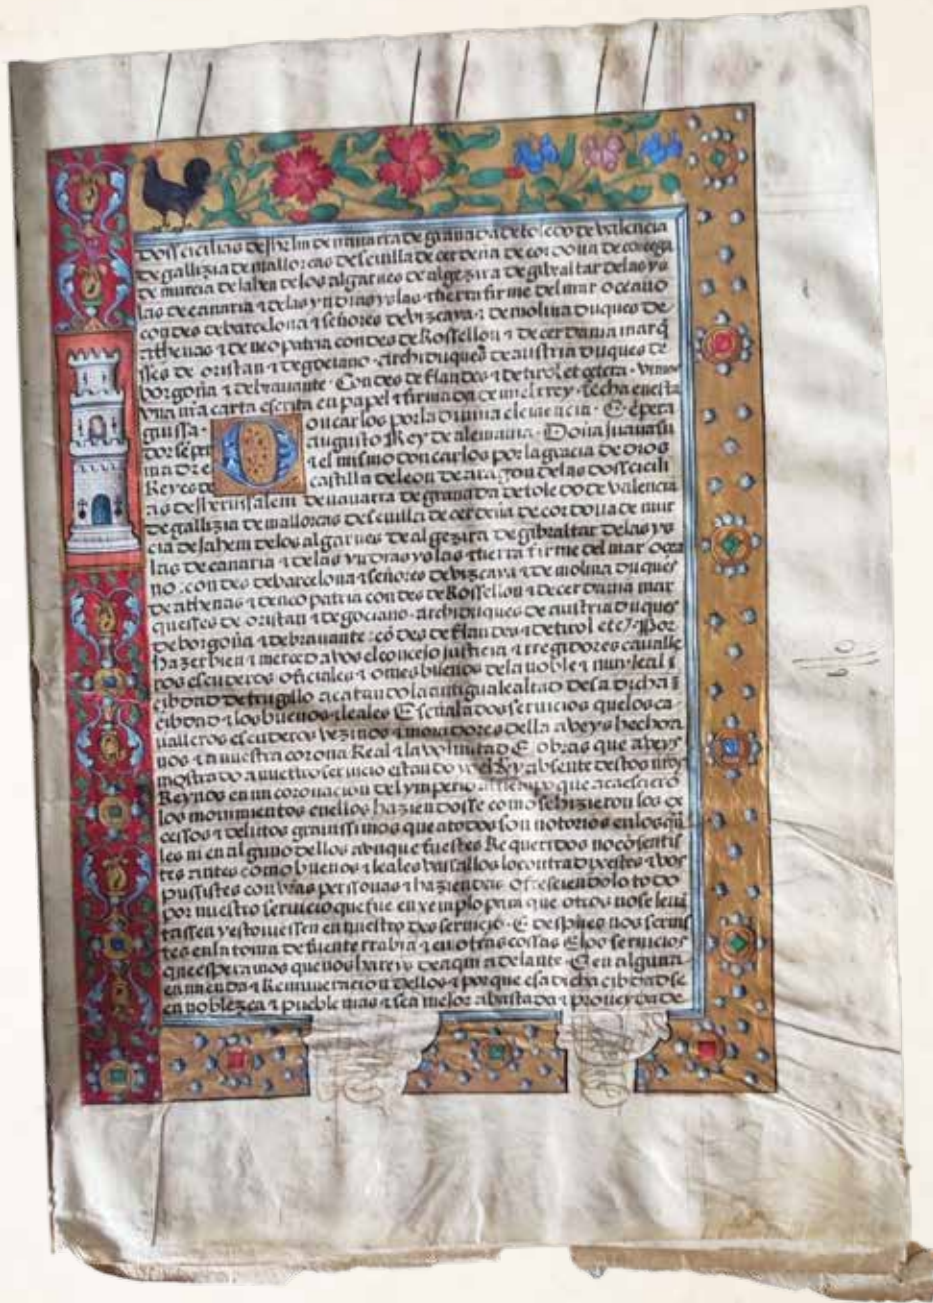 dos seçilias de jħrlm de navarra de granada de toledo de valencia
de gallizia de mallorcas de sevilla de cerdena de cordova de corcega
de murcia de jahen de los algarves de algezira de gibraltar de las ys
las de canaria ⁊ de las yndias yslas ⁊ tierra firme del mar oceano
condes de barcelona ⁊ señores de bizcaya ⁊ de molina duques de
athenas ⁊ de neopatria condes de Rossellon ⁊ de cerdania marq̄
ses de oristan ⁊ de gociano · archiduques de austria duques de
borgoña ⁊ de bravante · Condes de flandes ⁊ de tirol et cetera · vimos
vna mia carta escrita en papel ⁊ firmada de mi el rey · fecha en esta
guissa · Don carlos por la divina clemencia · E ēpera
dor sēpre augusto Rey de alemania · Doña juana su
madre ⁊ el mismo don carlos por la gracia de dios
Reyes de castilla de leon de aragon de las dos secili
as de iherusalem de navarra de granada de toledo de valencia
de gallizia de mallorcas de sevilla de cerdeña de cordova de mur
cia de jahem de los algarves de algezira de gibraltar de las ys
las de canaria ⁊ de las yndias yslas ⁊ tierra firme del mar ocea
no · condes de barcelona ⁊ señores de bizcaya ⁊ de molina duques
de athenas ⁊ de neopatria condes de Rossellon ⁊ de cerdania mar
quesses de oristan ⁊ de gociano · archiduques de austria duques
de borgoña ⁊ de bravante · cōdes de flandes ⁊ de tirol etc̄ · Por
hazer bien ⁊ merced a vos el concejo justicia ⁊ rregidores cavalle
ros escuderos oficiales ⁊ omes buenos de la noble ⁊ muy leal
cibdad de trugillo acatando la antigua lealtad desa dicha
cibdad ⁊ los buenos ⁊ leales E señalados servicios que los ca
valleros escuderos vezinos ⁊ moradores della abeys hecho a
nos ⁊ a nuestra corona Real ⁊ la volūtad E obras que abeys
mostrado a nuestro servicio estando yo el Rey absente destos nr̄os
Reynos en mi coronacion del ymperio al tiempo que acaesciero
los movimientos en ellos haziendosse como se hizieron los ex
cessos ⁊ delitos gravissimos que a todos son notorios en los q̄
les ni en alguno dellos avnque fuestes Requeridos no cōsentis
tes antes como buenos ⁊ leales vassallos lo contradixestes ⁊ vos
pussistes con vr̄as perssonas ⁊ haziendas ofresciendolo todo
por nuestro servicio que fue enxemplo para que otros no se levā
tassen y estoviessen en nuestro des servicio · E despues nos servis
tes en la toma de fuente rrabia ⁊ en otras cossas E los servicios
que esperamos que nos hareys de aqui adelante · E en alguna
enmienda ⁊ Remuneracion dellos ⁊ porque esa dicha cibdad se
en noblezca ⁊ pueble mas ⁊ sea mejor abastada ⁊ proveyda de